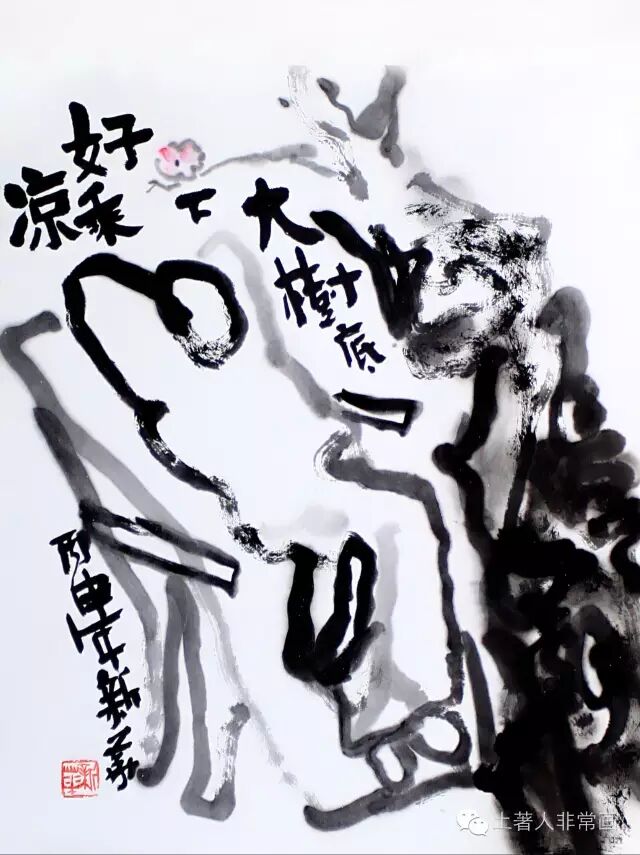 大樹底
下
好乘
涼
丙申年新
土著人非常画